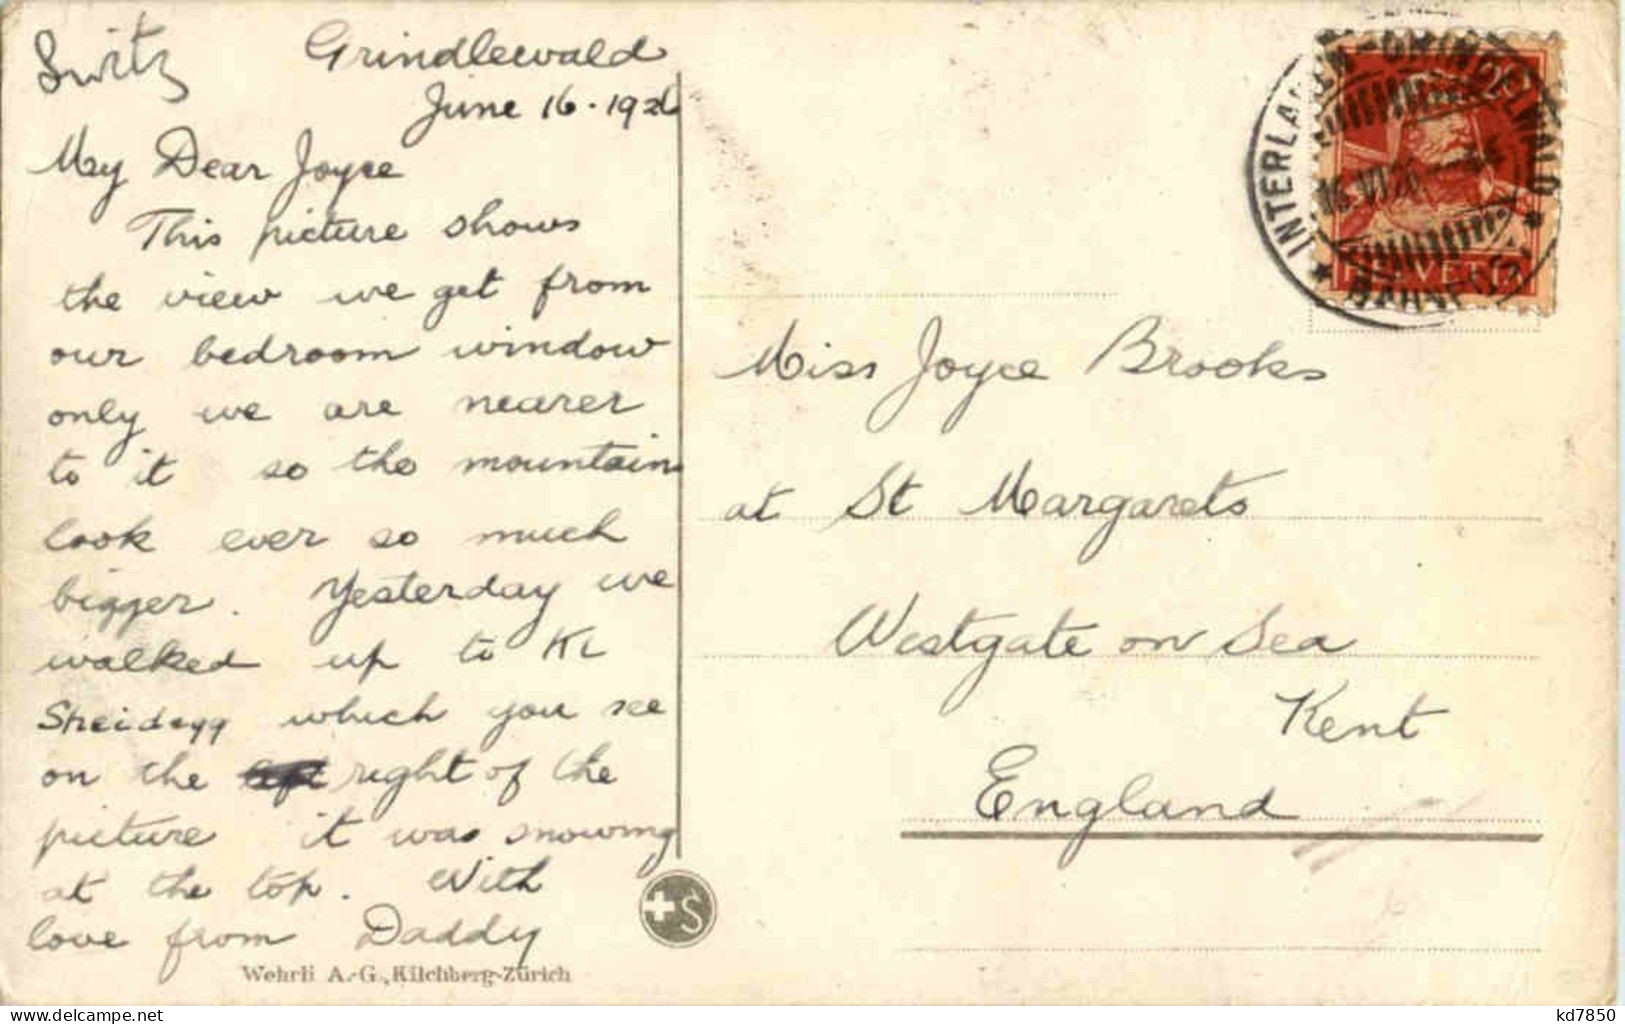 Switz
Grindlewald
June 16 - 1926
My Dear Joyce
This picture shows
the view we get from
our bedroom window
only we are nearer
to it so the mountains
look ever so much
bigger. Yesterday we
walked up to Kl
Sheidegg which you see
on the left right of the
picture it was snowing
at the top. With
love from Daddy
Wehrli A.-G., Kilchberg-Zürich
S
INTERLAKEN-GRINDELWALD
16.VI.26
HELVETIA
Miss Joyce Brooks
at St Margarets
Westgate on Sea
Kent
England
delcampe.net
kd7850